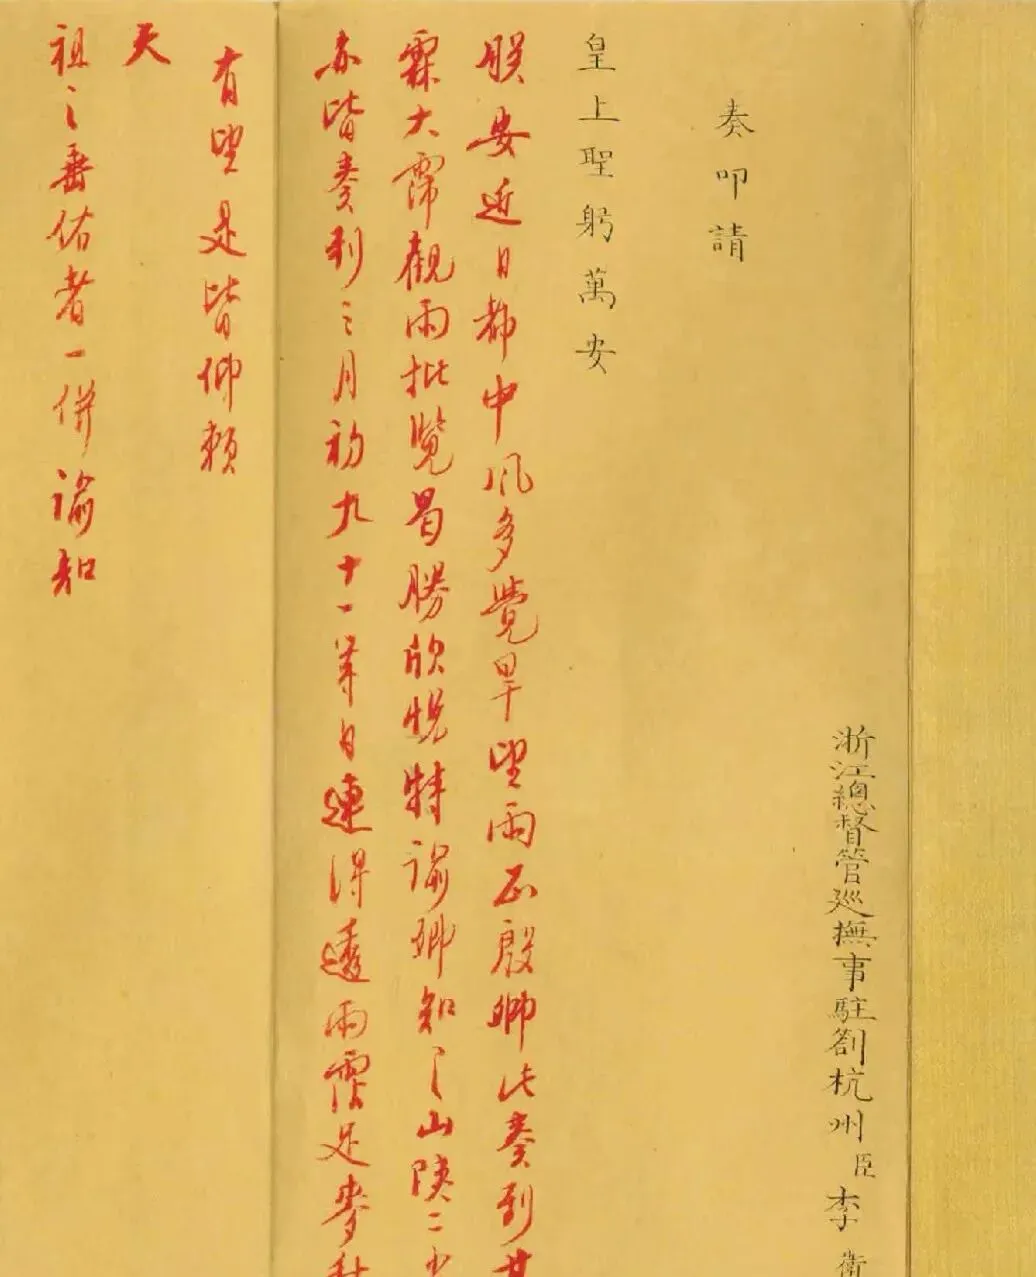 浙江總督管巡撫事駐劄杭州臣李衛
奏叩請
皇上聖躬萬安
朕安近日都中風多覺旱望雨正殷卿此奏到甘
霖大霈觀雨批覽曷勝欣悅特諭卿知之山陝二
亦皆奏到三月初九十一等日連得透雨霑足麥秋
有望是皆仰賴
天
祖之垂佑者一併諭知